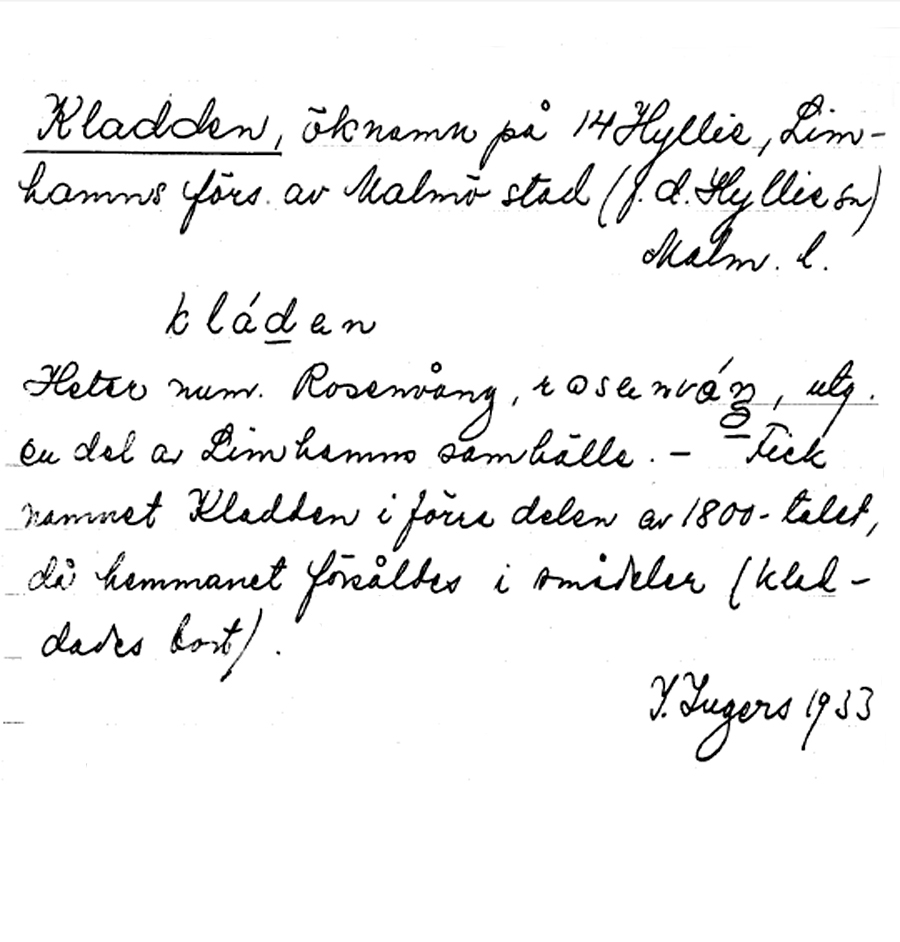 Kladden, öknamn på 14 Hyllie, Lim-
hamns förs. av Malmö stad (f. d. Hyllie sn)
Malm. l.
kláden
Heter num. Rosenvång, rosenváŋ, utg.
en del av Limhamns samhälle. - Fick
namnet Kladden i förra delen av 1800-talet,
då hemmanet försåldes i smådelar (klad-
dades bort).
I. Ingers 1933